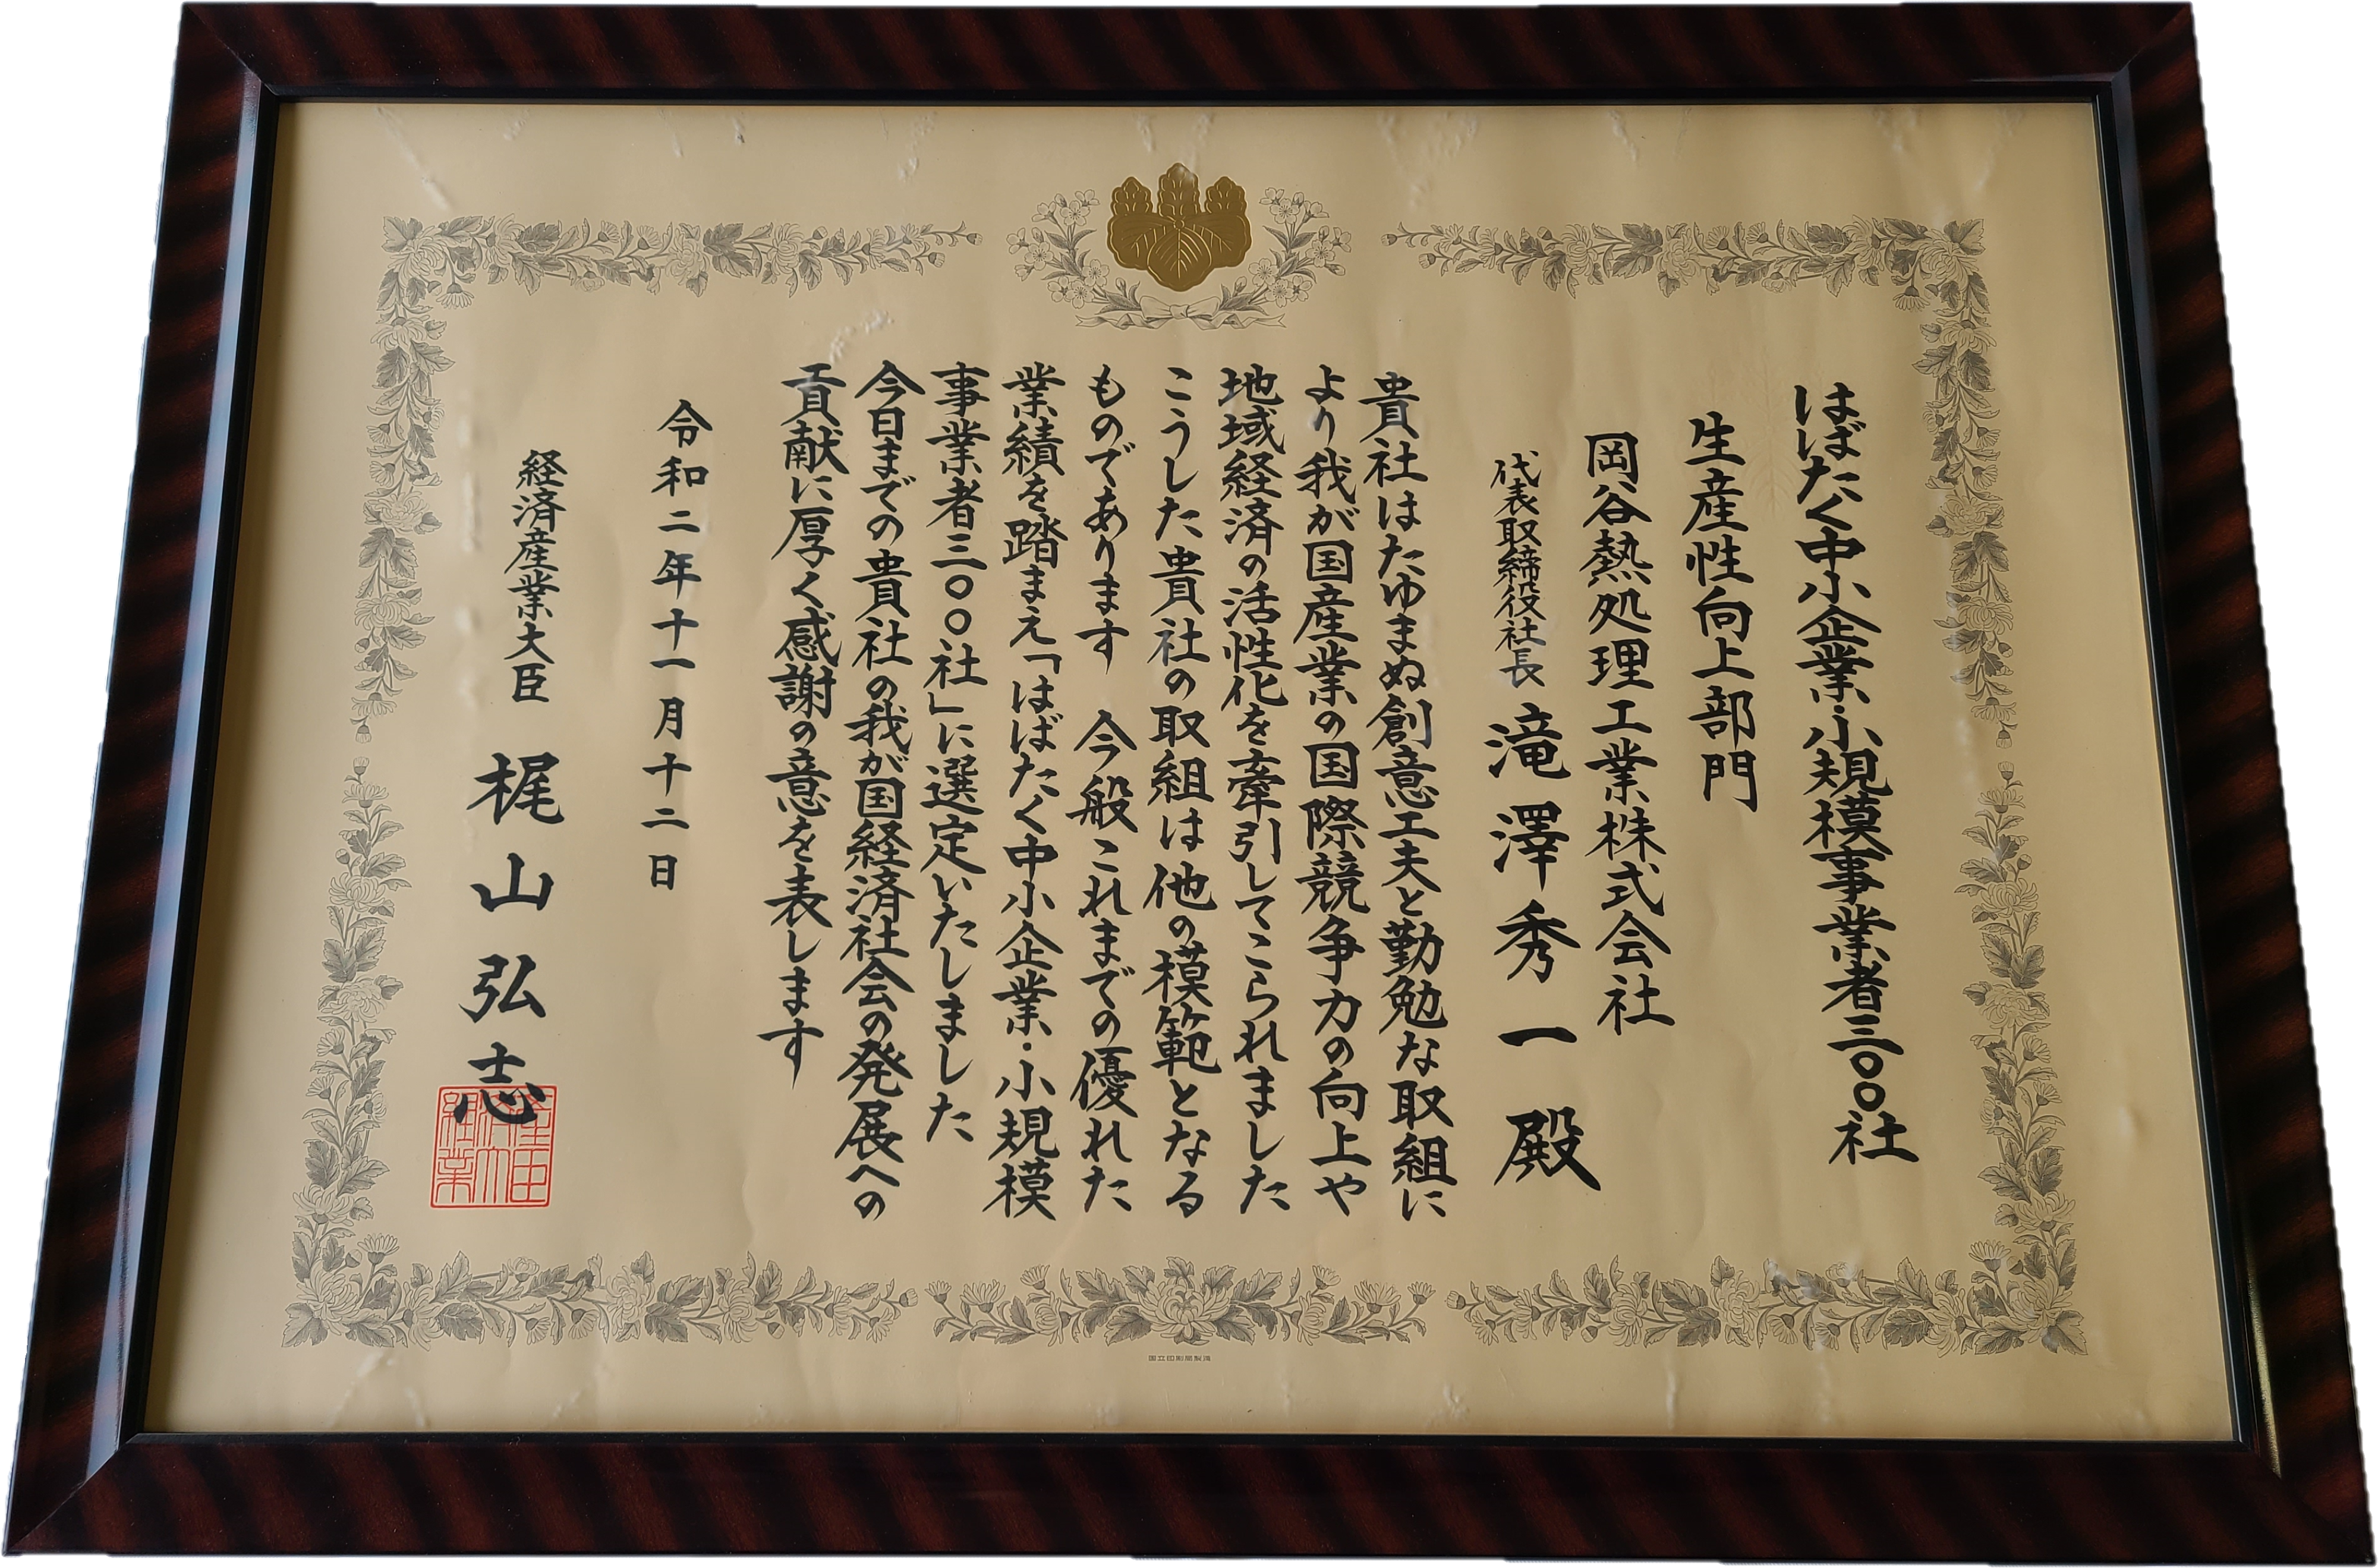 はばたく中小企業・小規模事業者三〇〇社
生産性向上部門
岡谷熱処理工業株式会社
代表取締役社長 滝澤秀一殿
貴社はたゆまぬ創意工夫と勤勉な取組に
より我が国産業の国際競争力の向上や
地域経済の活性化を牽引してこられました
こうした貴社の取組は他の模範となる
ものであります 今般これまでの優れた
業績を踏まえ「はばたく中小企業・小規模
事業者三〇〇社」に選定いたしました
今日までの貴社の我が国経済社会の発展への
貢献に厚く感謝の意を表します
令和二年十一月十二日
経済産業大臣 梶山弘志
国立印刷局製造